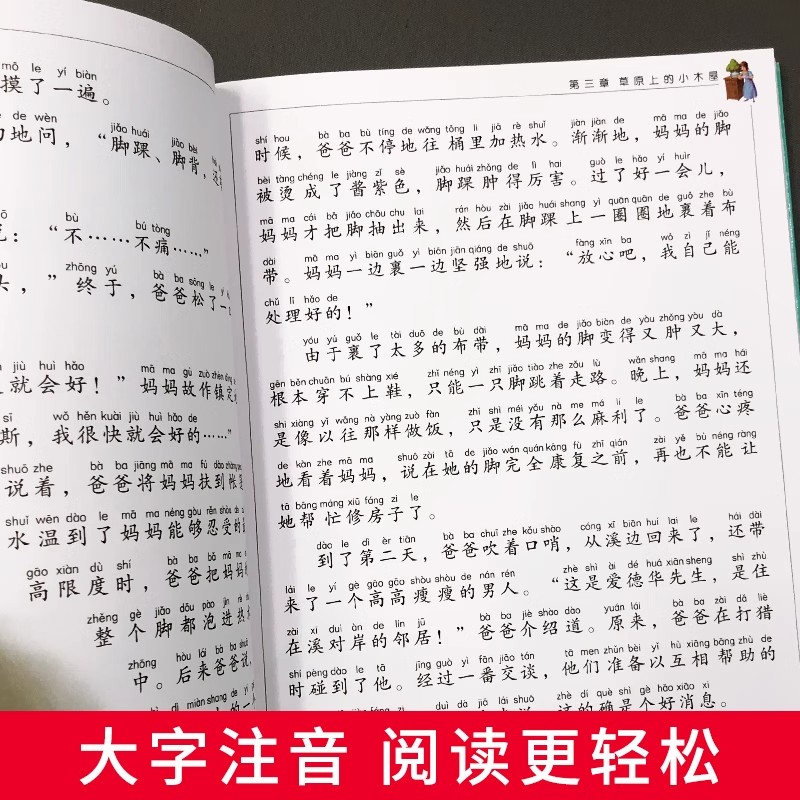 mō le yí biàn
摸了一遍。
de wèn jiǎo huái jiǎo bèi
地问，“脚踝、脚背，
bù bú tòng
：“不……不痛……”
zhōng yú bà ba sōng le yì
，”终于，爸爸松了一
jiù huì hǎo mā ma gù zuò zhèn dìng
就会好！”妈妈故作镇定
sī wǒ hěn kuài jiù huì hǎo de
斯，我很快就会好的……”
shuō zhe bà ba jiāng mā ma fú dào zhàng
说着，爸爸将妈妈扶到帐
shuǐ wēn dào le mā ma néng gòu rěn shòu de
水温到了妈妈能够忍受的
gāo xiàn dù shí bà ba bǎ mā ma
高限度时，爸爸把妈妈
zhěng gè jiǎo dōu pào jìn rè
整个脚都泡进热
zhōng hòu lái bà ba shuō
中。后来爸爸说，
第三章 草原上的小木屋
shí hou bà ba bù tíng de wǎng tǒng li jiā rè shuǐ jiàn jiàn de mā ma de jiǎo
时候，爸爸不停地往桶里加热水。渐渐地，妈妈的脚
bèi tàng chéng le jiàng zǐ sè jiǎo huái zhǒng de lì hai guò le hǎo yí huìr
被烫成了酱紫色，脚踝肿得厉害。过了好一会儿，
mā ma cái bǎ jiǎo chōu chu lai rán hòu zài jiǎo huái shang yì quān quān de guǒ zhe bù
妈妈才把脚抽出来，然后在脚踝上一圈圈地裹着布
dài mā ma yì biān guǒ yì biān jiān qiáng de shuō fàng xīn ba wǒ zì jǐ néng
带。妈妈一边裹一边坚强地说：“放心吧，我自己能
chǔ lǐ hǎo de
处理好的！”
yóu yú guǒ le tài duō de bù dài mā ma de jiǎo biàn de yòu zhǒng yòu dà
由于裹了太多的布带，妈妈的脚变得又肿又大，
gēn běn chuān bú shàng xié zhǐ néng yì zhī jiǎo tiào zhe zǒu lù wǎn shang mā ma hái
根本穿不上鞋，只能一只脚跳着走路。晚上，妈妈还
shì xiàng yǐ wǎng nà yàng zuò fàn zhǐ shì méi yǒu nà me má li le bà ba xīn téng
是像以往那样做饭，只是没有那么麻利了。爸爸心疼
de kàn zhe mā ma shuō zài tā de jiǎo wán quán kāng fù zhī qián zài yě bù néng ràng
地看着妈妈，说在她的脚完全康复之前，再也不能让
tā bāng máng xiū fáng zi le
她帮忙修房子了。
dào le dì èr tiān bà ba chuī zhe kǒu shào cóng xī biān huí lai le hái dài
到了第二天，爸爸吹着口哨，从溪边回来了，还带
lái le yí gè gāo gāo shòu shòu de nán rén zhè shì ài dé huá xiān sheng shì zhù
来了一个高高瘦瘦的男人。“这是爱德华先生，是住
zài xī duì àn de lín jū bà ba jiè shào dào yuán lái bà ba zài dǎ liè
在溪对岸的邻居！”爸爸介绍道。原来，爸爸在打猎
shí pèng dào le tā jīng guò yì fān jiāo tán tā men zhǔn bèi yǐ hù xiāng bāng zhù de
时碰到了他。经过一番交谈，他们准备以互相帮助的
jiā lái shuō zhè dí què shì gè hǎo xiāo xi
这的确是个好消息。
大字注音 阅读更轻松